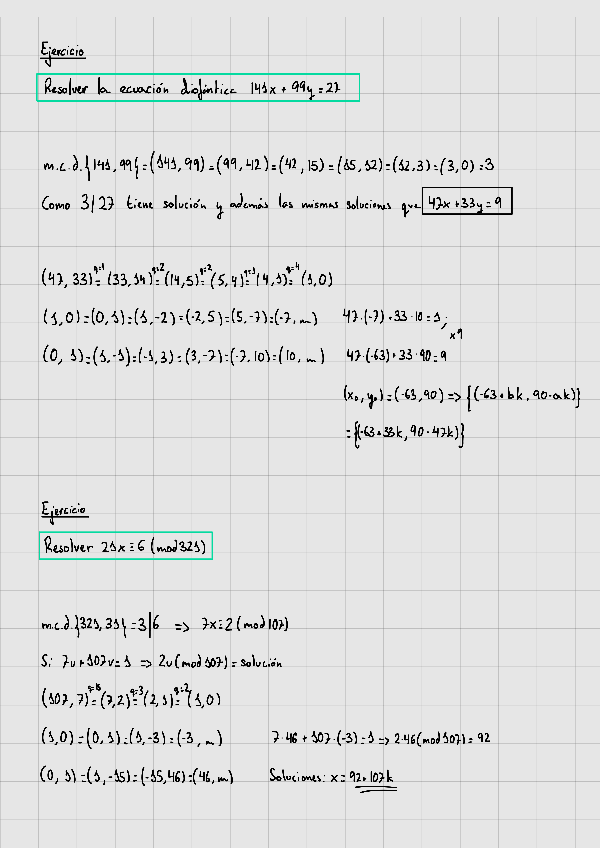 Ejercicio
Resolver la ecuación diofántica 141x + 99y = 27
m.c.d.{141, 99} = (141, 99) = (99, 42) = (42, 15) = (15, 12) = (12, 3) = (3, 0) = 3
Como 3 | 27 tiene solución y además las mismas soluciones que 47x + 33y = 9
(47, 33) q=1 = (33, 14) q=2 = (14, 5) q=2 = (5, 4) q=1 = (4, 1) q=4 = (1, 0)
(1, 0) = (0, 1) = (1, -2) = (-2, 5) = (5, -7) = (-7, m) 47·(-7) + 33·10 = 1;
x9
(0, 1) = (1, -1) = (-1, 3) = (3, -7) = (-7, 10) = (10, m) 47·(-63) + 33·90 = 9
(x₀, y₀) = (-63, 90) => {(-63 + bk, 90 - ak)}
= {(-63 + 33k, 90 - 47k)}
Ejercicio
Resolver 21x ≡ 6 (mod 321)
m.c.d.{321, 31} = 3 | 6 => 7x ≡ 2 (mod 107)
Si 7u + 107v = 1 => 2u (mod 107) = solución
(107, 7) q=15 = (7, 2) q=3 = (2, 1) q=2 = (1, 0)
(1, 0) = (0, 1) = (1, -3) = (-3, m) 7·46 + 107·(-3) = 1 => 2·46 (mod 107) = 92
(0, 1) = (1, -15) = (-15, 46) = (46, m) Soluciones: x = 92 + 107k